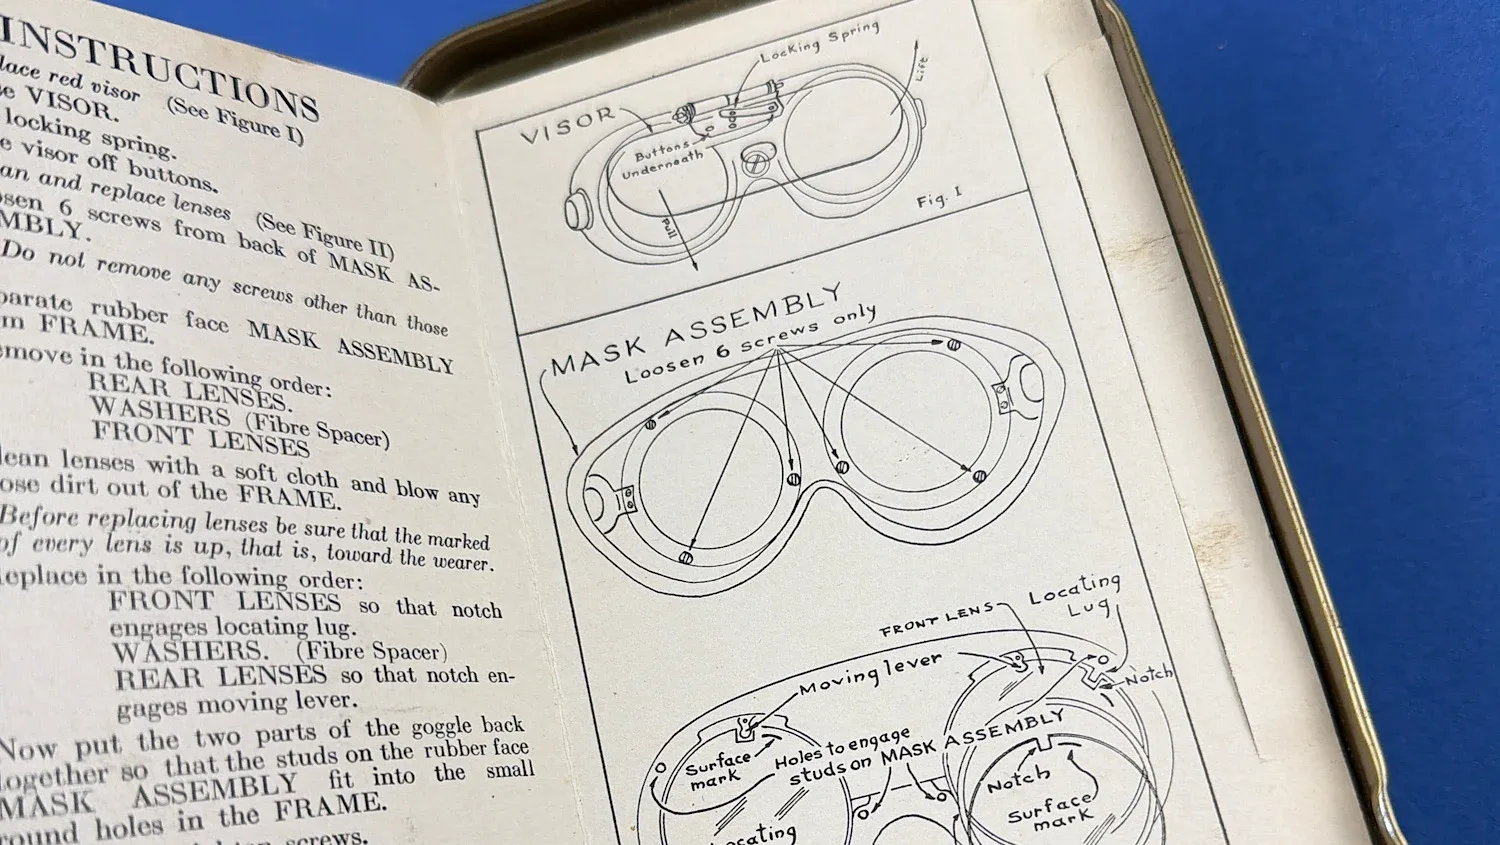 INSTRUCTIONS
lace red visor (See Figure I)
e VISOR.
locking spring.
e visor off buttons.
an and replace lenses (See Figure II)
sen 6 screws from back of MASK AS-
MBLY.
Do not remove any screws other than those
parate rubber face MASK ASSEMBLY
m FRAME.
move in the following order:
REAR LENSES.
WASHERS (Fibre Spacer)
FRONT LENSES
lean lenses with a soft cloth and blow any
ose dirt out of the FRAME.
Before replacing lenses be sure that the marked
of every lens is up, that is, toward the wearer.
eplace in the following order:
FRONT LENSES so that notch
engages locating lug.
WASHERS. (Fibre Spacer)
REAR LENSES so that notch en-
gages moving lever.
Now put the two parts of the goggle back
together so that the studs on the rubber face
MASK ASSEMBLY fit into the small
round holes in the FRAME.
screws.
VISOR
Locking Spring
Lift
Buttons
Underneath
Pull
Fig. I
MASK ASSEMBLY
Loosen 6 screws only
FRONT LENS
Locating
Lug
Moving lever
Notch
Surface
mark
Holes to engage
studs on MASK ASSEMBLY
Notch
Surface
mark
ocating